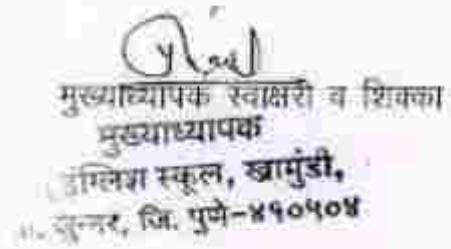 मुख्याध्यापक स्वाक्षरी व शिक्का
मुख्याध्यापक
इंग्लिश स्कूल, खामुंडी,
जुन्नर, जि. पुणे-४१०५०४